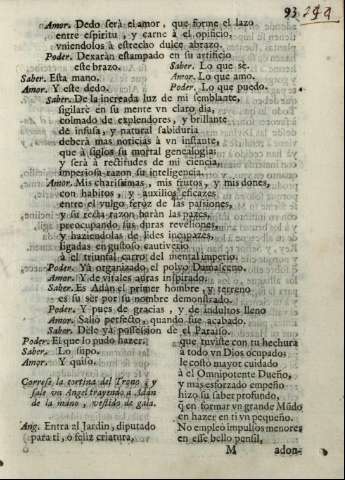 93
Amor. Dedo serà el amor, que forme el lazo
entre espiritu, y carne à el opificio,
vniendolos à estrecho dulce abrazo.
Poder. Dexaràn estampado en su artificio
este brazo. Saber. Lo que sè.
Saber. Esta mano. Amor. Lo que amo.
Amor. Y este dedo. Poder. Lo que puedo.
Saber. De la increada luz de mi semblante,
sigilarè en su mente vn claro dia,
colmado de explendores, y brillante
de infusa, y natural sabiduria
deberà mas noticias à vn instante,
que à siglos su mortal genealogia;
y serà à rectitudes de mi ciencia,
imperiosa razon su inteligencia.
Amor. Mis charissimas, mis frutos, y mis dones,
con habitos, y auxilios eficazes
entre el vulgo feroz de las passiones,
y su recta razon haràn las pazes,
preocupando sus duras reveliones,
y haziendolas de lides incapazes,
ligadas en gustoso cautiverio
à el triunfal carro del mental imperio.
Poder. Yà organizado el polvo Damasceno.
Amor. Y de vitales auras inspirado.
Saber. Es Adàn el primer hombre, y terreno
es su ser por su nombre demonstrado.
Poder. Y pues de gracias, y de indultos lleno
Amor. Saliò perfecto, quando fue acabado.
Saber. Dele yà possession de el Paraiso.
Poder. El que lo pudo hazer.
Saber. Lo supo.
Amor. Y quiso.
Correse la cortina del Trono, y
sale vn Angel trayendo à Adàn
de la mano, vestido de gala.
Ang. Entra al Jardin, diputado
para ti, ò feliz criatura,
que tuviste con tu hechura
à todo vn Dios ocupado:
le costò mayor cuidado
à el Omnipotente Dueño,
y mas esforzado empeño
hizo su saber profundo,
q̃ en formar vn grande Mũdo
en hazer en ti vn pequeño.
No empleò impulsos menores
en esse bello pensil,
M adon-